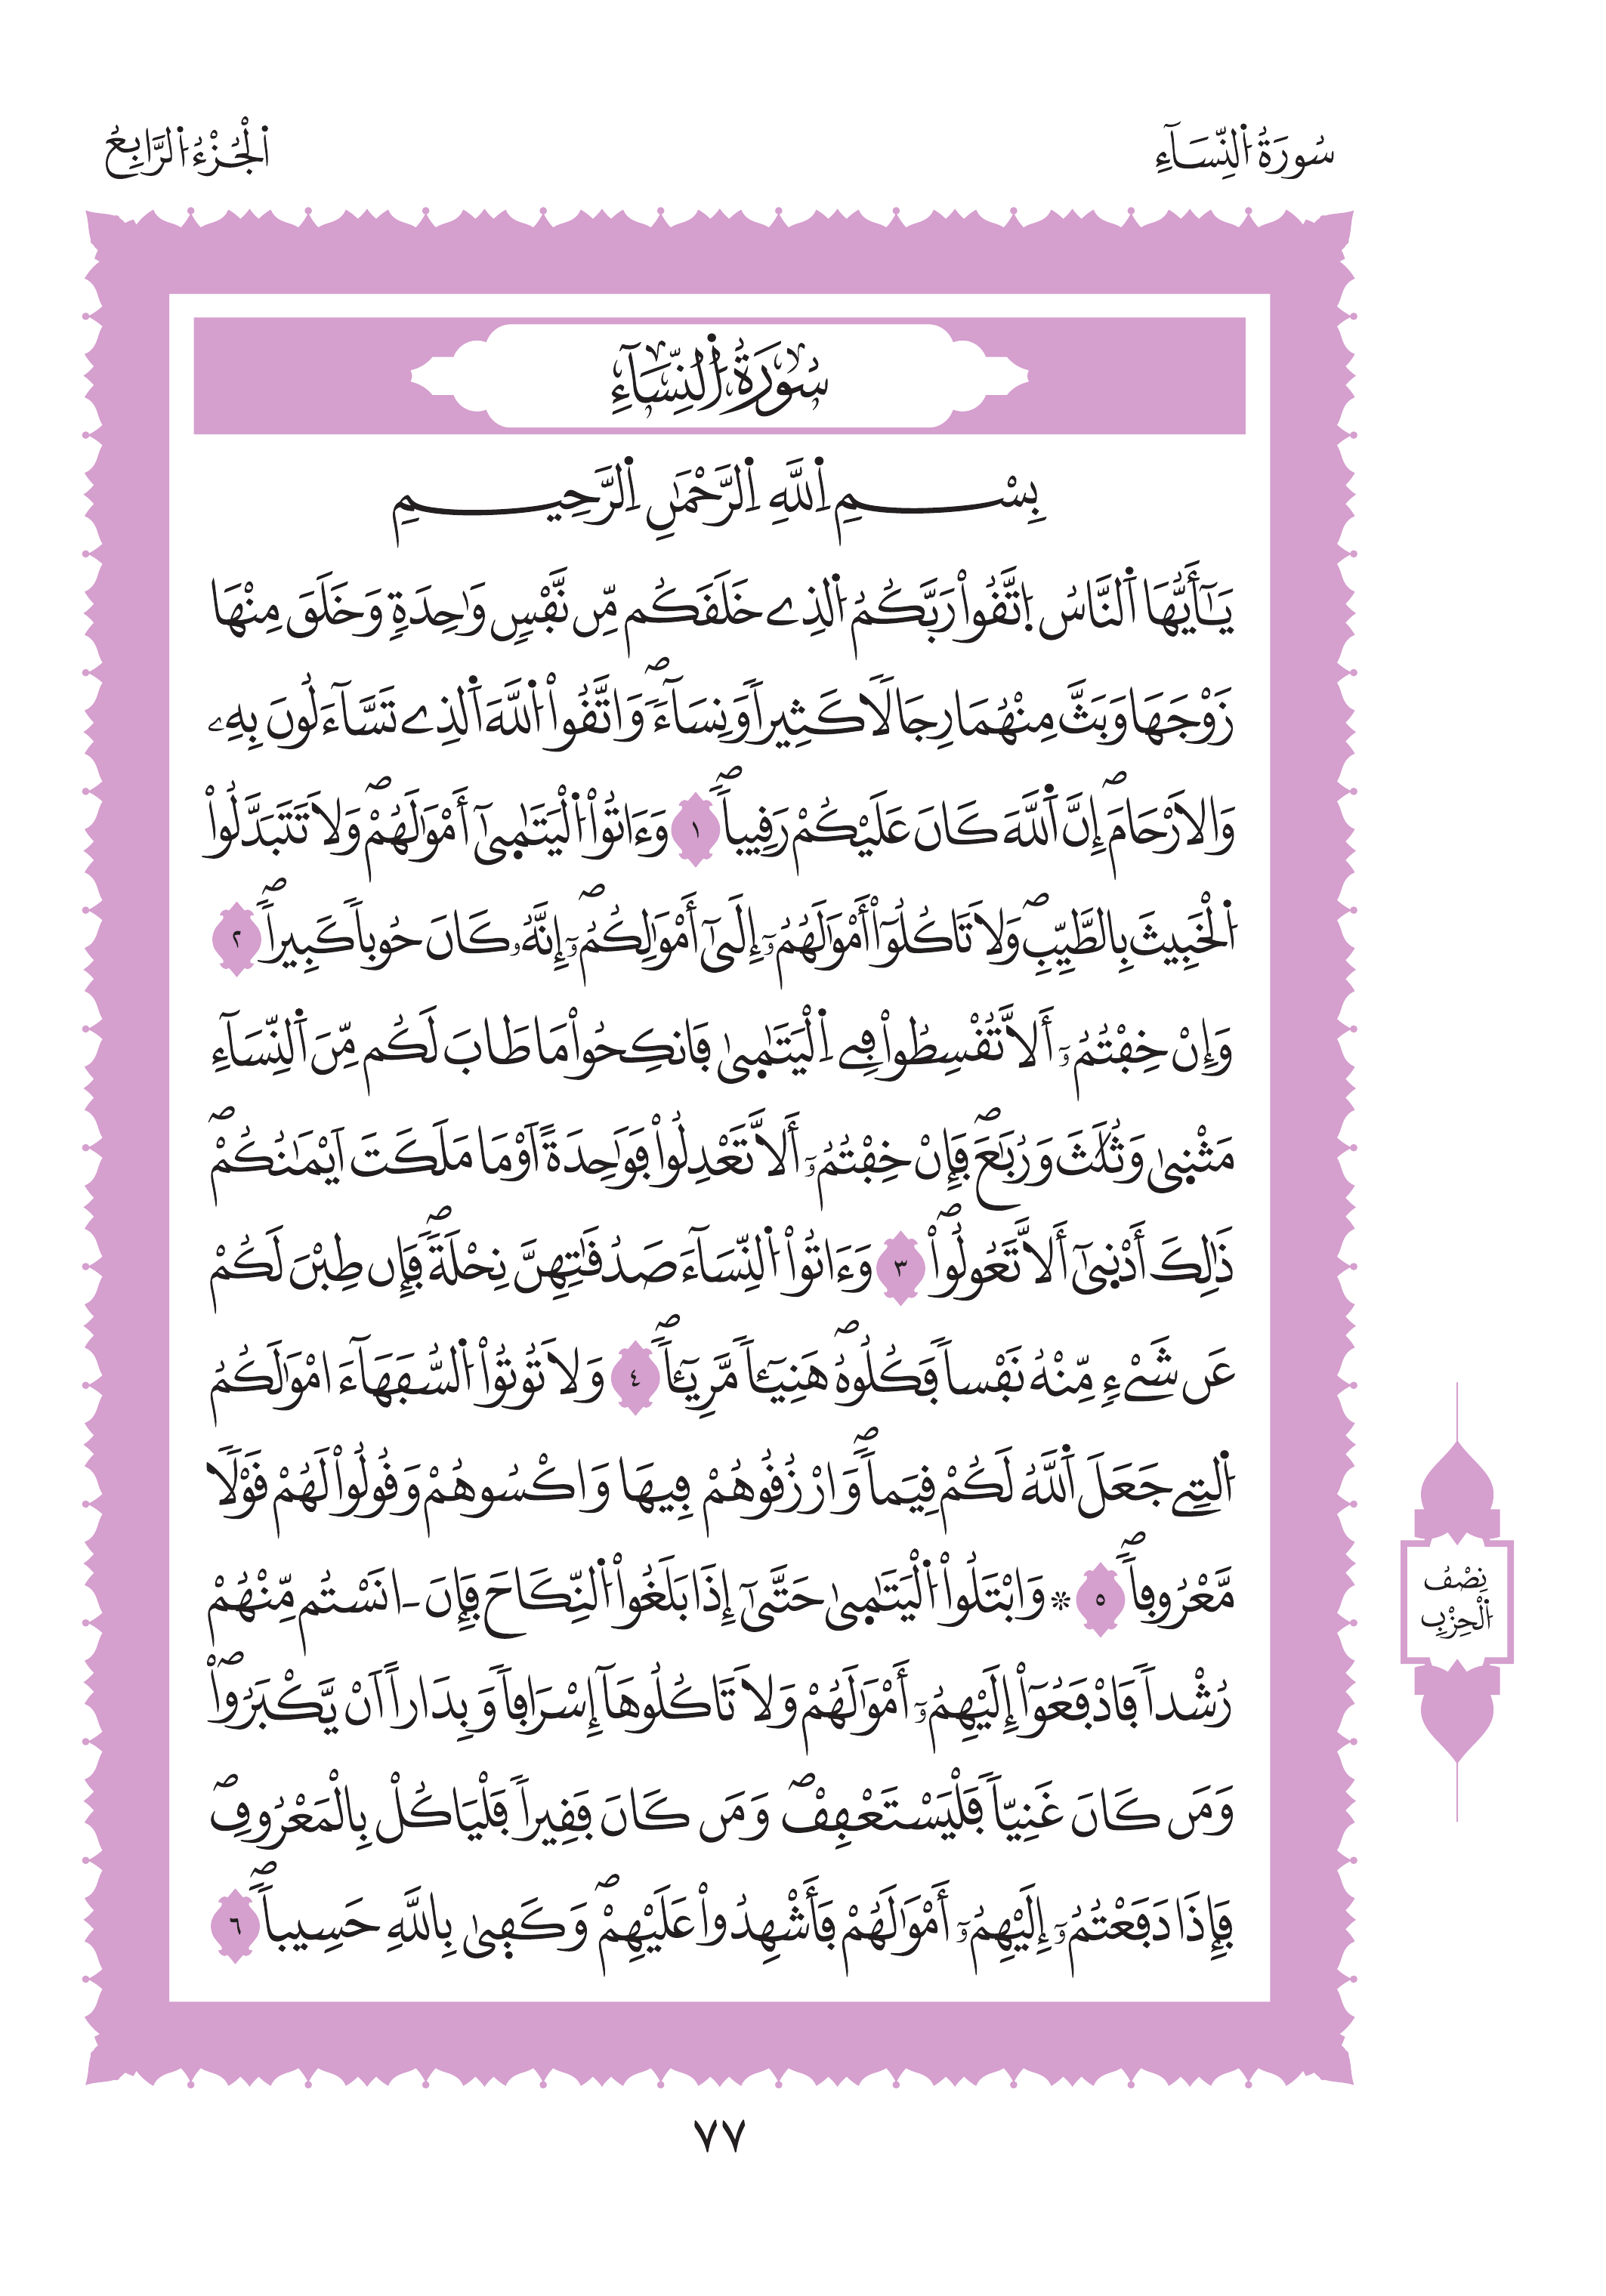 سُورَةُ اُ۬لنِّسَآءِ
اَ۬لْجُزْءُ اُ۬لرَّابِعُ
سُورَةُ اُ۬لنِّسَآءِ
بِسْمِ اِ۬للَّهِ اِ۬لرَّحْمَٰنِ اِ۬لرَّحِيمِ
يَٰٓأَيُّهَا اَ۬لنَّاسُ اُ۪تَّقُواْ رَبَّكُمُ اُ۬لذِے خَلَقَكُم مِّن نَّفْسٖ وَٰحِدَةٖ وَخَلَقَ مِنْهَا
زَوْجَهَا وَبَثَّ مِنْهُمَا رِجَالاٗ كَثِيراٗ وَنِسَآءٗۖ وَاتَّقُواْ اُ۬للَّهَ اَ۬لذِے تَسَّآءَلُونَ بِهِۦ
وَالَارْحَامَۖ إِنَّ اَ۬للَّهَ كَانَ عَلَيْكُمْ رَقِيباٗۖ ١ وَءَاتُواْ اُ۬لْيَتَٰم۪يٰٓ أَمْوَٰلَهُمْۖ وَلَا تَتَبَدَّلُواْ
اُ۬لْخَبِيثَ بِالطَّيِّبِۖ وَلَا تَاكُلُوٓاْ أَمْوَٰلَهُمُۥٓ إِلَىٰٓ أَمْوَٰلِكُمُۥٓۖ إِنَّهُۥ كَانَ حُوباٗ كَبِيراٗۖ ٢
وَإِنْ خِفْتُمُۥٓ أَلَّا تُقْسِطُواْ فِے اِ۬لْيَتَٰم۪يٰ فَانكِحُواْ مَا طَابَ لَكُم مِّنَ اَ۬لنِّسَآءِ
مَثْن۪يٰ وَثُلَٰثَ وَرُبَٰعَۖ فَإِنْ خِفْتُمُۥٓ أَلَّا تَعْدِلُواْ فَوَٰحِدَةً اَوْ مَا مَلَكَتَ اَيْمَٰنُكُمْۖ
ذَٰلِكَ أَدْن۪يٰٓ أَلَّا تَعُولُواْۖ ٣ وَءَاتُواْ اُ۬لنِّسَآءَ صَدُقَٰتِهِنَّ نِحْلَةٗۖ فَإِن طِبْنَ لَكُمْ
عَن شَےْءٖ مِّنْهُ نَفْساٗ فَكُلُوهُۖ هَنِيٓـٔاٗ مَّرِيٓـٔاٗۖ ٤ وَلَا تُوتُواْ اُ۬لسُّفَهَآءَ امْوَٰلَكُمُ
اُ۬لتِے جَعَلَ اَ۬للَّهُ لَكُمْ قِيَماٗۖ وَارْزُقُوهُمْ فِيهَا وَاكْسُوهُمْ وَقُولُواْ لَهُمْ قَوْلاٗ
مَّعْرُوفاٗۖ ٥ ۞ وَابْتَلُواْ اُ۬لْيَتَٰم۪يٰ حَتَّىٰٓ إِذَا بَلَغُواْ اُ۬لنِّكَاحَ فَإِنَ ـ۬انَسْتُم مِّنْهُمْ
رُشْداٗ فَادْفَعُوٓاْ إِلَيْهِمُۥٓ أَمْوَٰلَهُمْ وَلَا تَاكُلُوهَآ إِسْرَافاٗ وَبِدَاراً اَنْ يَّكْبَرُواْۖ
وَمَن كَانَ غَنِيّاٗ فَلْيَسْتَعْفِفْۖ وَمَن كَانَ فَقِيراٗ فَلْيَاكُلْ بِالْمَعْرُوفِۖ
فَإِذَا دَفَعْتُمُۥٓ إِلَيْهِمُۥٓ أَمْوَٰلَهُمْ فَأَشْهِدُواْ عَلَيْهِمْۖ وَكَف۪يٰ بِاللَّهِ حَسِيباٗۖ ٦
نِصْفُ
اُ۬لْحِزْبِ
٧٧